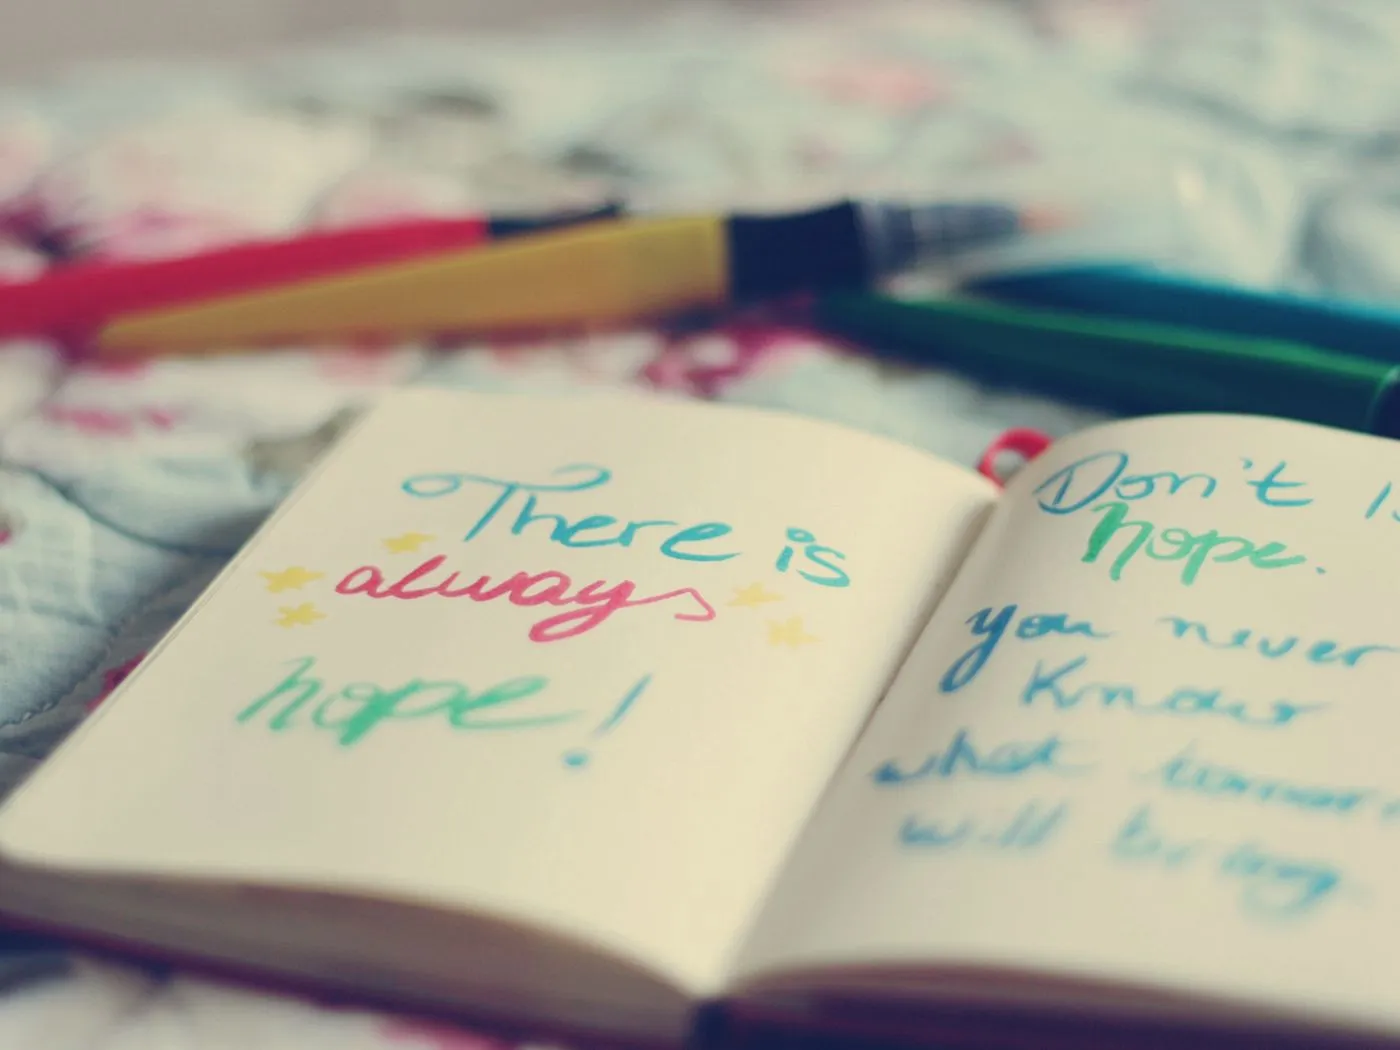 There is
always
hope!
Don't
hope.
you never
Know
what
will bring